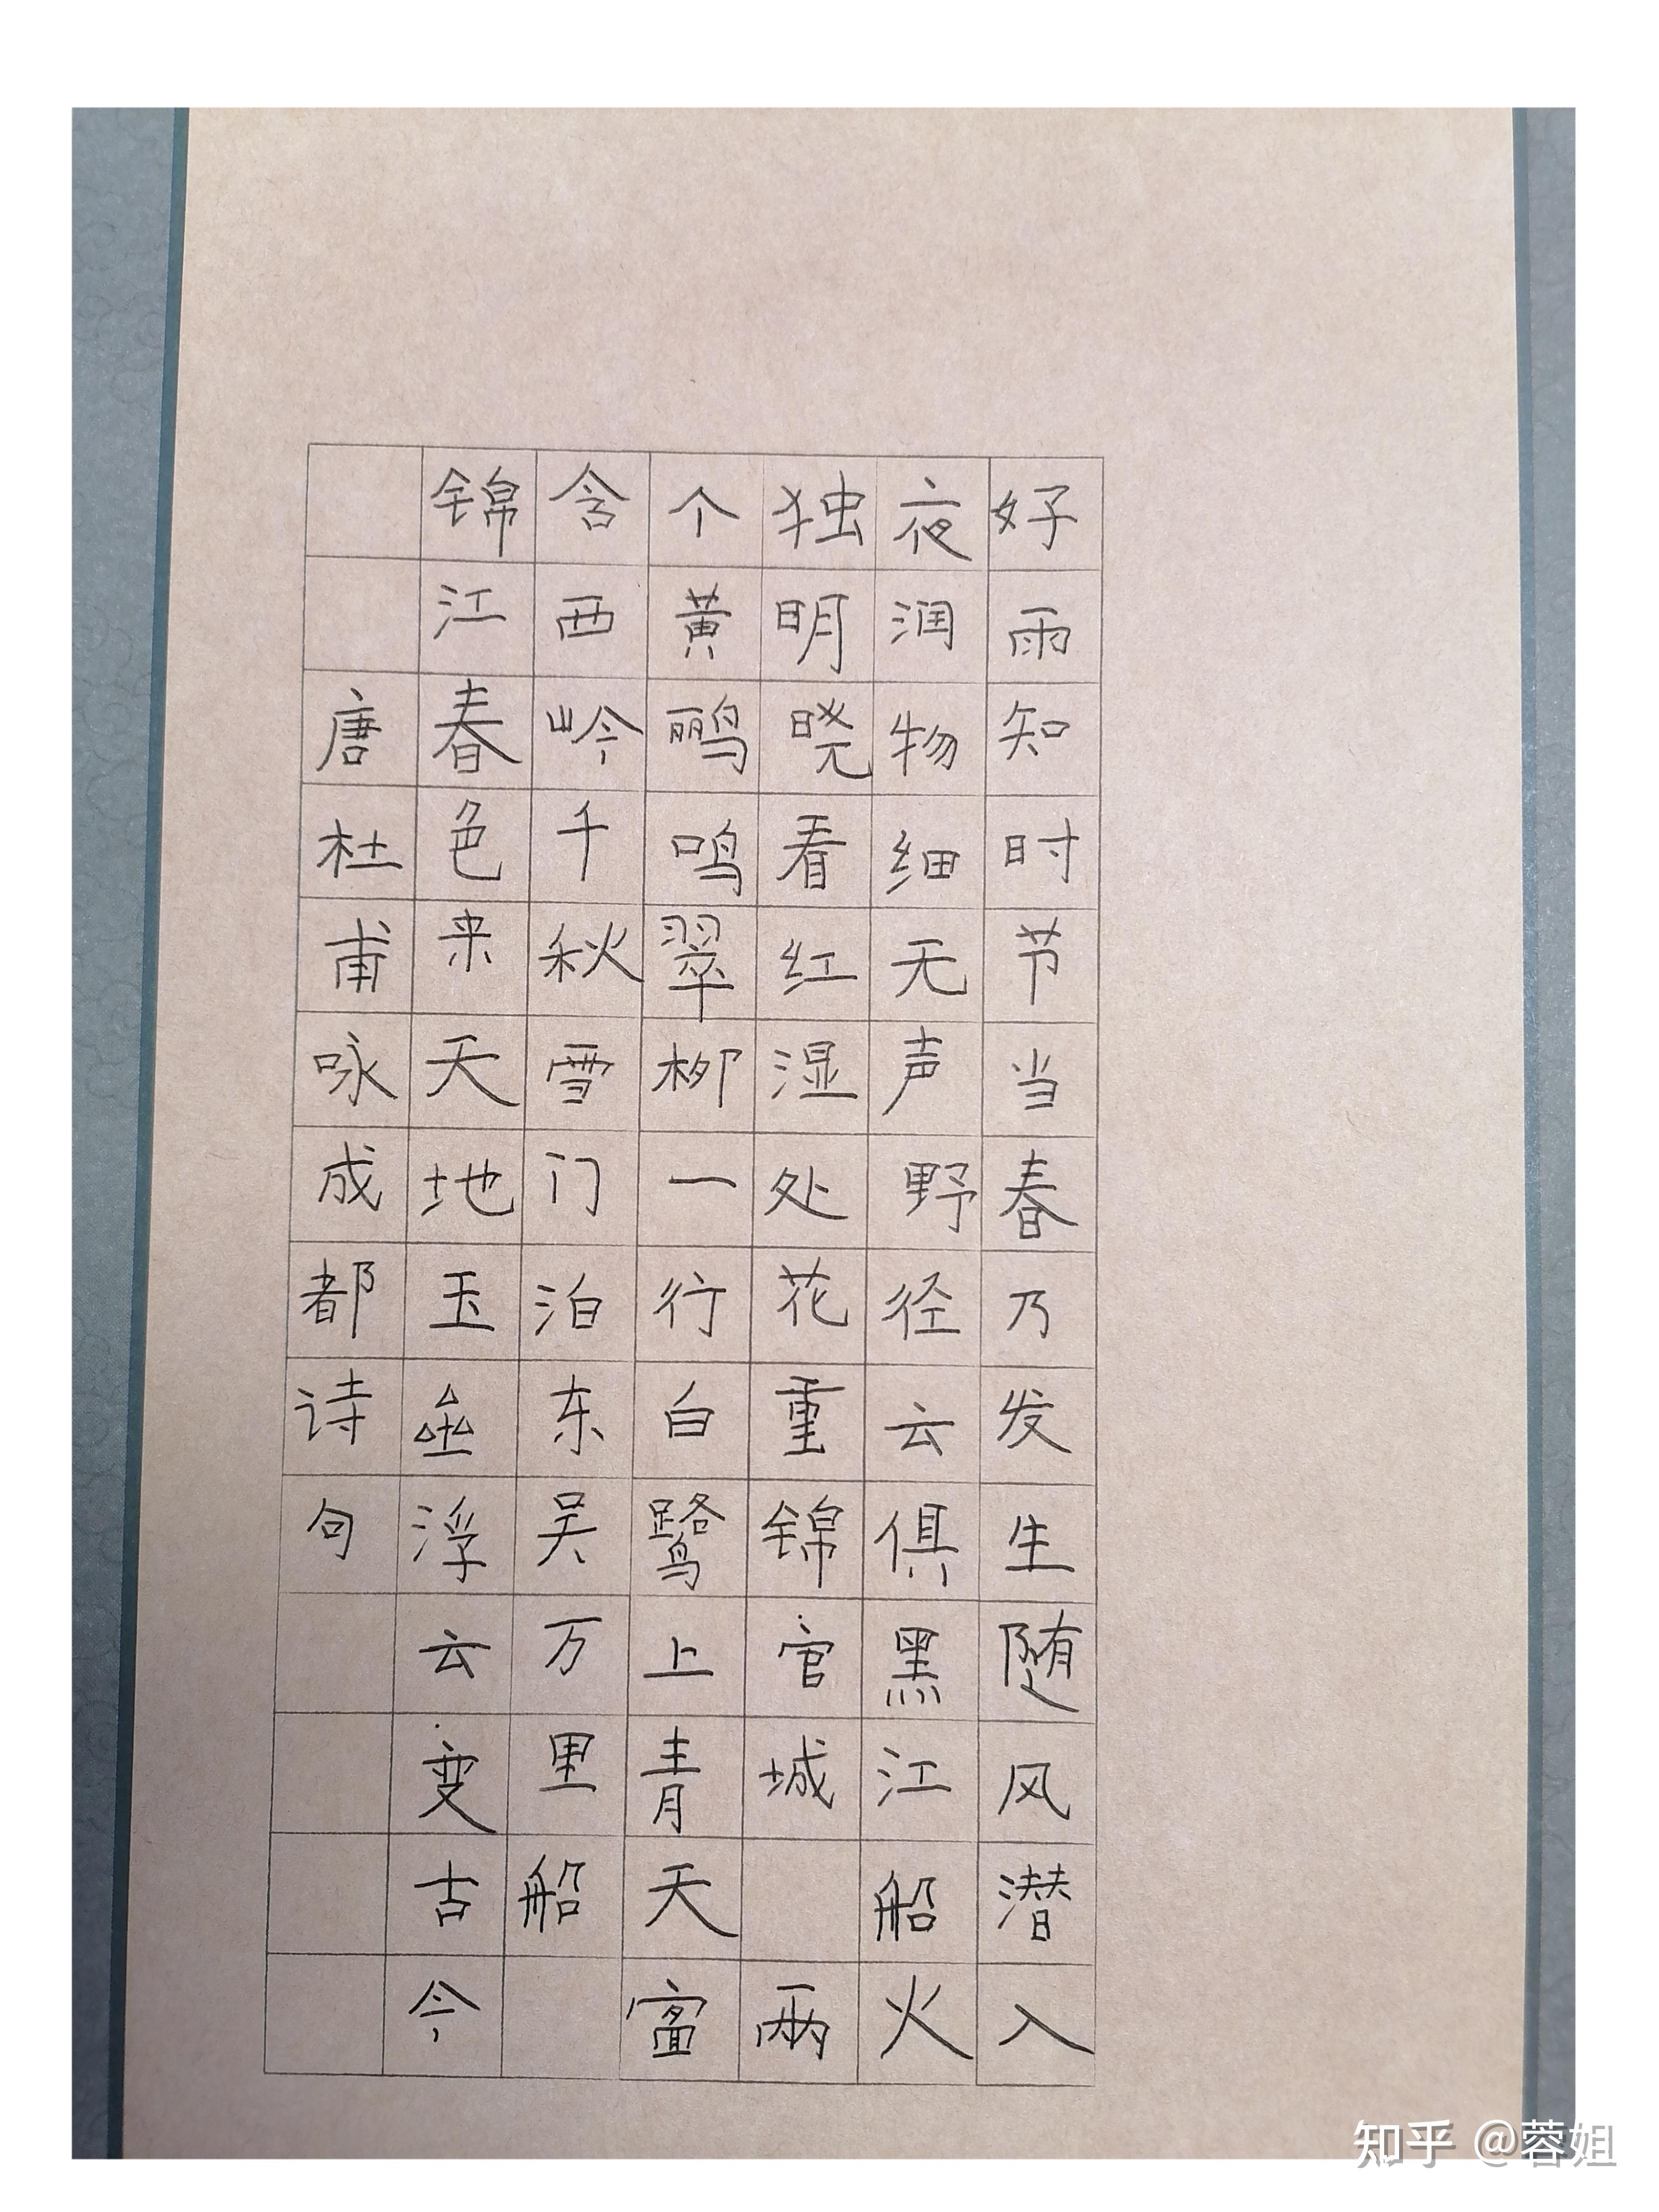 好雨知时节当春乃发生随风潜入
夜润物细无声野径云俱黑江船火
独明晓看红湿处花重锦官城 两
个黄鹂鸣翠柳一行白鹭上青天窗
含西岭千秋雪门泊东吴万里船
锦江春色来天地玉垒浮云变古今
唐杜甫咏成都诗句
知乎 @蓉姐